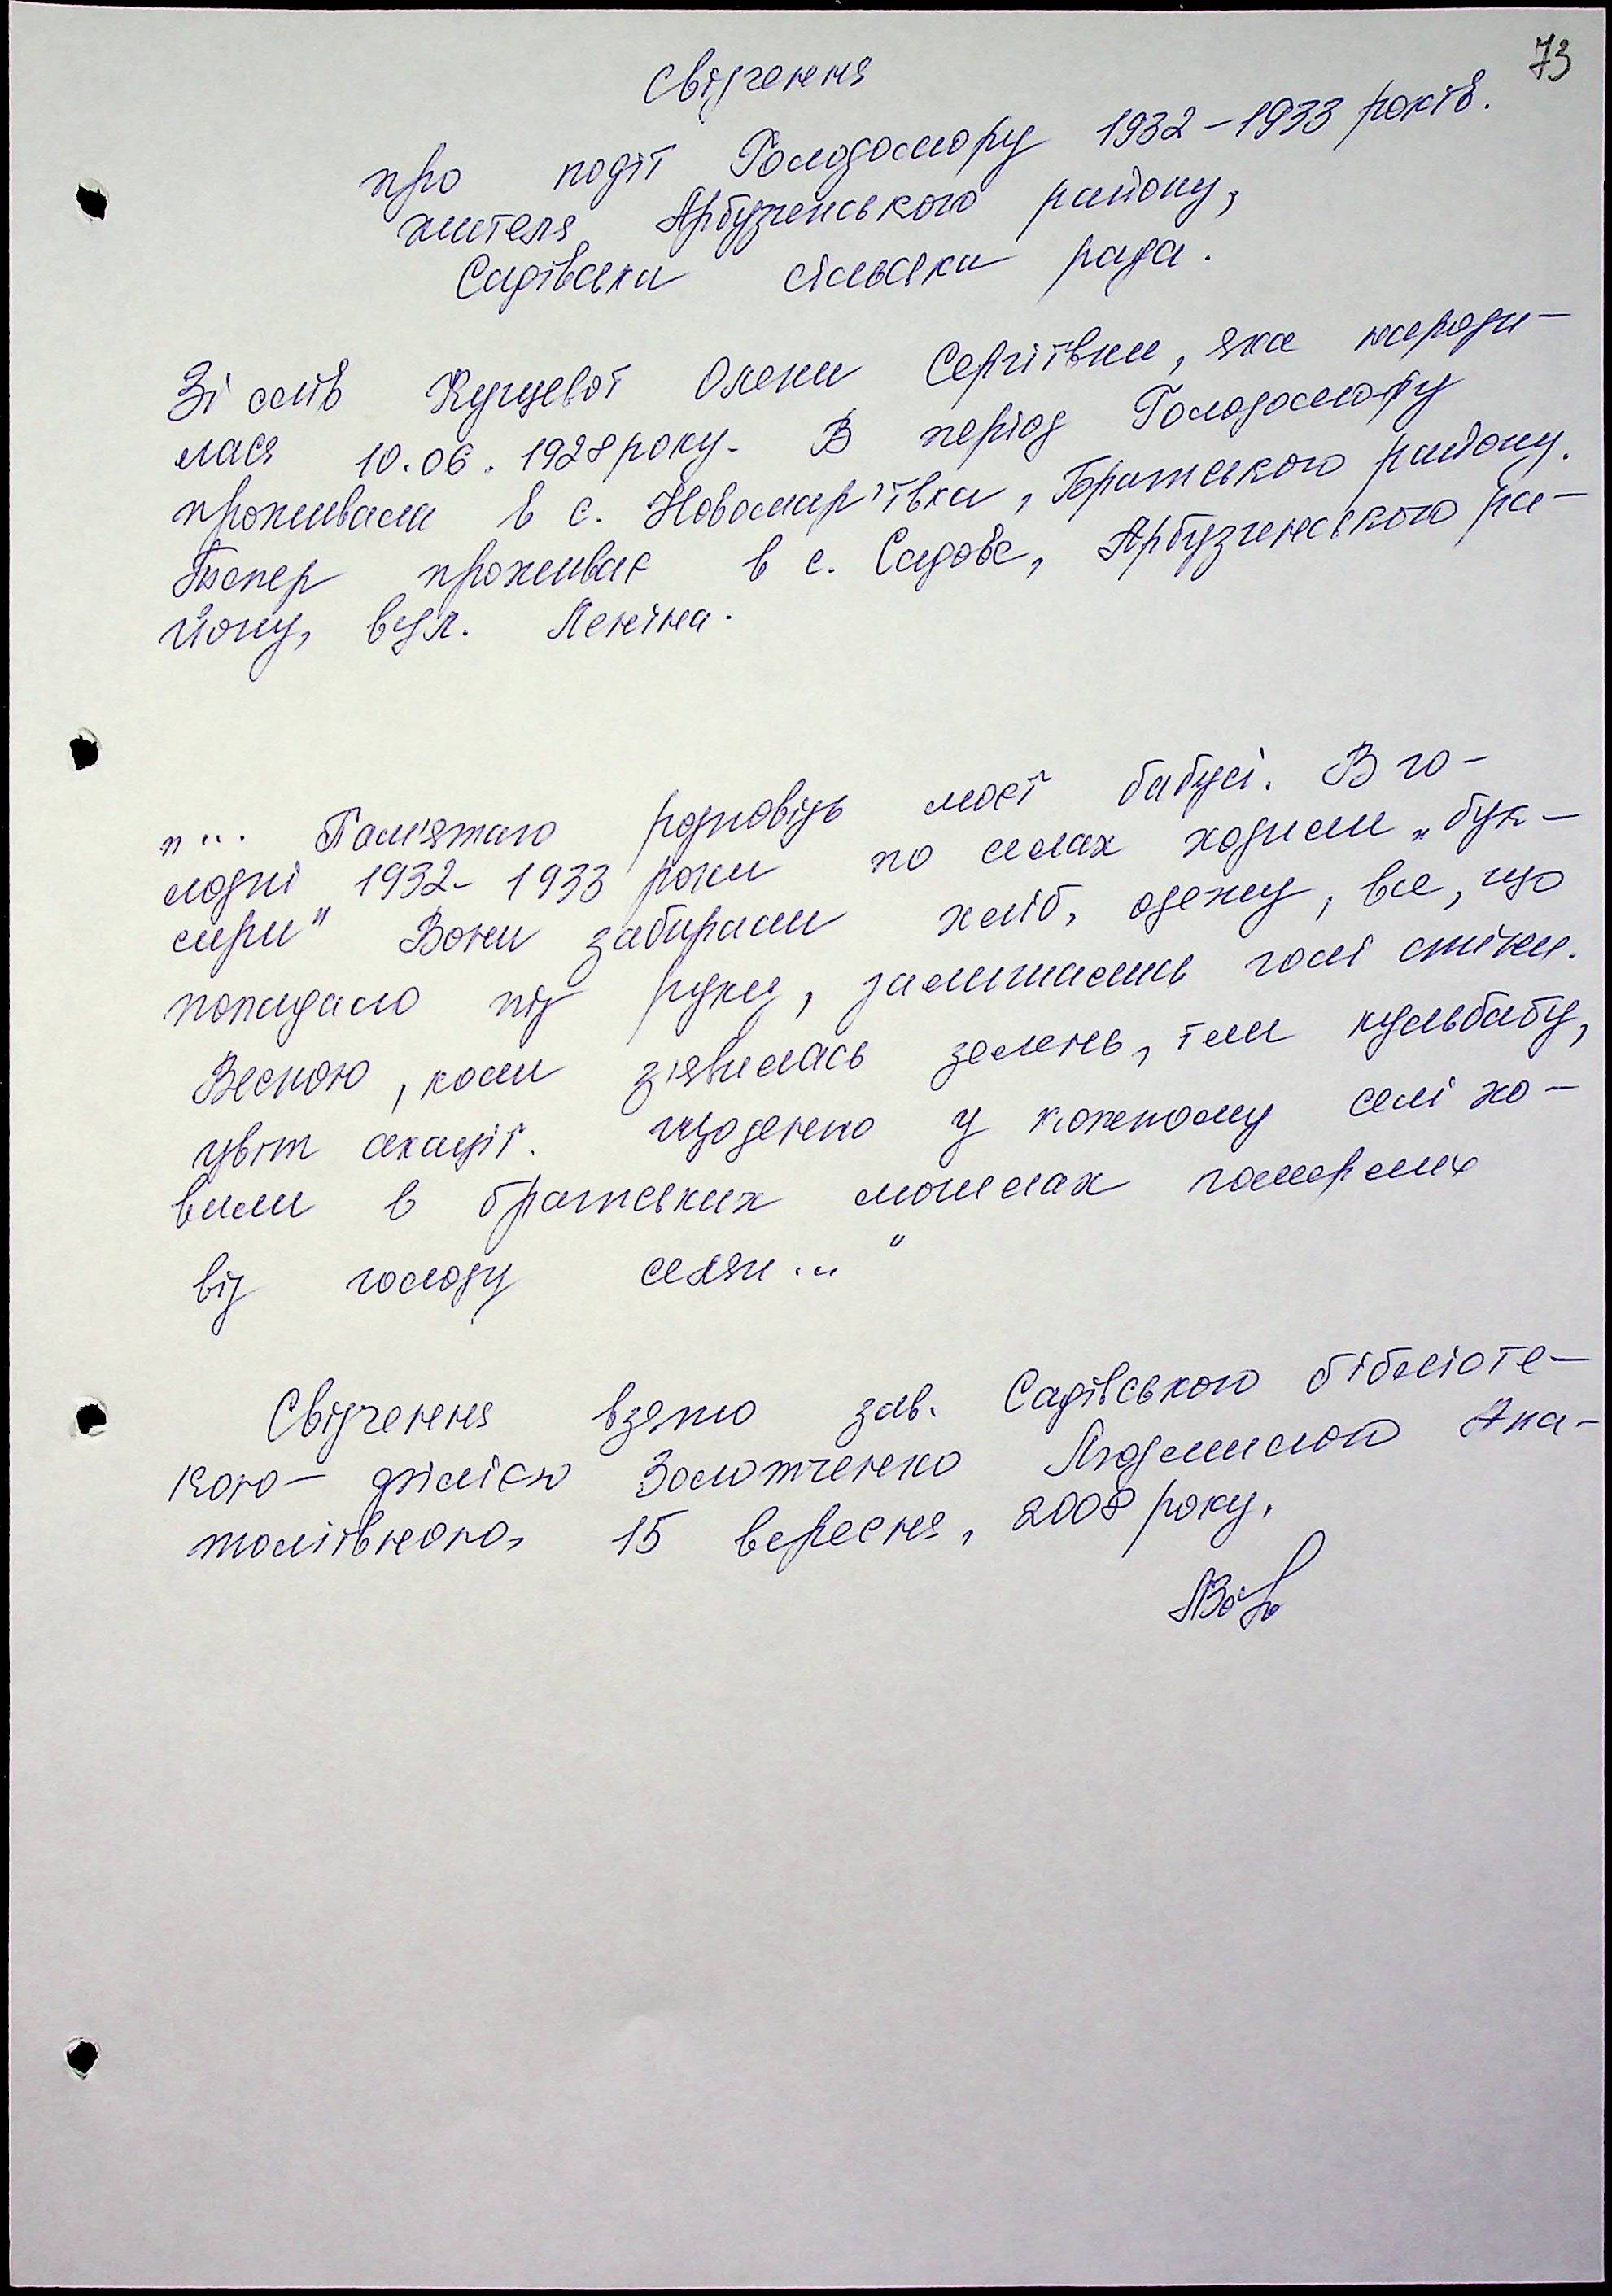 73
Свідчення
про події Голодомору 1932-1933 років.
жителя Арбузинського району,
Садівська сільська рада.
Зі слів Куцевої Олени Сергіївни, яка народи-
лася 10.06.1928 року. В період Голодомору
проживала в с. Новомар'ївка, Братського району.
Тепер проживає в с. Садове, Арбузинського ра-
йону, вул. Леніна.
"... Пам'ятаю розповідь моєї бабусі. В го-
лодні 1932-1933 роки по селах ходили „бук-
сири" Вони забирали хліб, одежу, все, що
попадало під руки, залишались голі стіни.
Весною, коли з'явилась зелень, їли кульбабу,
цвіт акації. Щоденно у кожному селі хо-
вали в братських могилах померлих
від голоду селян..."
Свідчення взято зав. Садівською бібліоте-
кою-філією Золотченко Людмилою Ана-
толіївною, 15 вересня, 2008 року.